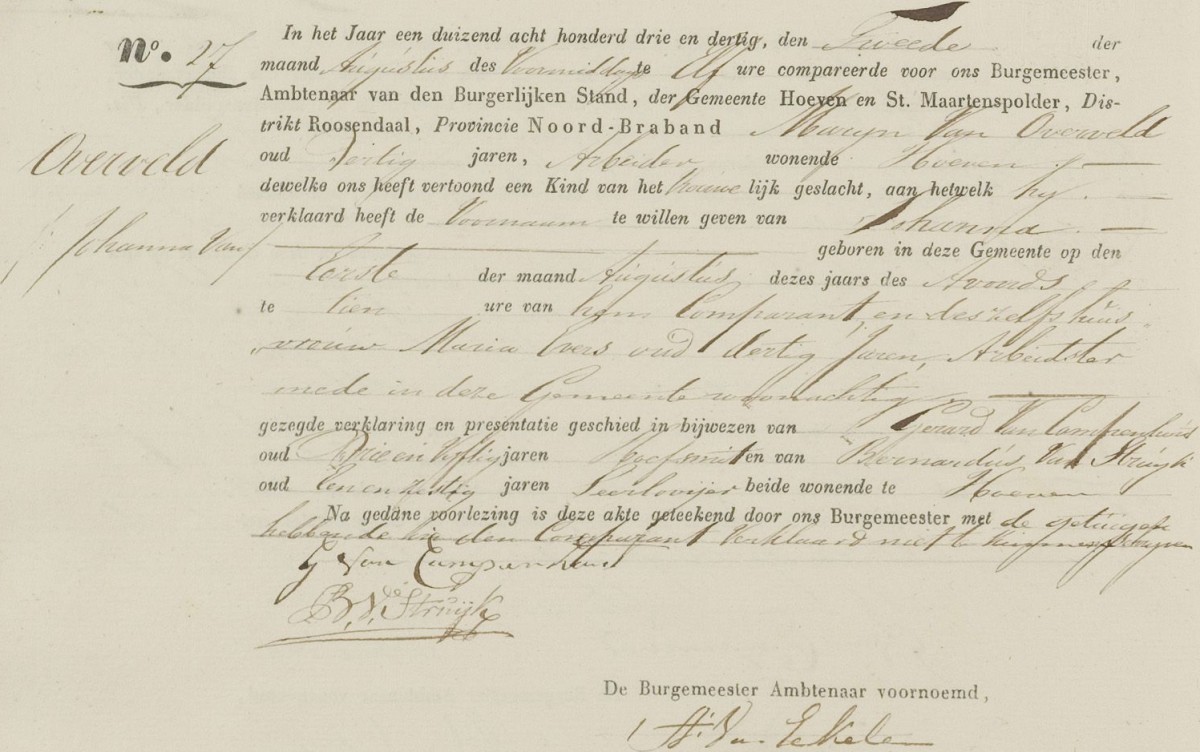 In het Jaar een duizend acht honderd drie en dertig, den Tweede der
No. 27
maand Augustus des Voormiddags te Elf ure compareerde voor ons Burgemeester,
Ambtenaar van den Burgerlijken Stand, der Gemeente Hoeven en St. Maartenspolder, Dis-
trikt Roosendaal, Provincie Noord-Braband Maryn Van Overveld
Overveld
oud Dertig jaren, Arbeider wonende Hoeven
dewelke ons heeft vertoond een Kind van het vrouwelijk geslacht, aan hetwelk hy
verklaard heeft de Voornaam te willen geven van Johanna
Johanna Van
geboren in deze Gemeente op den
Eerste der maand Augustus dezes jaars des Avonds
te tien ure van hem Comparant, en deszelfs huis
vrouw Maria Evers oud dertig Jaren, Arbeidster
mede in deze Gemeente woonachtig
gezegde verklaring en presentatie geschied in bijwezen van Gerard Van Campenhout
oud Drie en Vyftig jaren Hoefsmit en van Bernardus Van Struyk
oud Een en zestig jaren Leerlovijer beide wonende te Hoeven
Na gedane voorlezing is deze akte geteekend door ons Burgemeester met de getuigen
hebbende den Comparant Verklaard niet te kunnen
G Van Campenhout
B. V. Struijk
De Burgemeester Ambtenaar voornoemd,
Van Eekelen